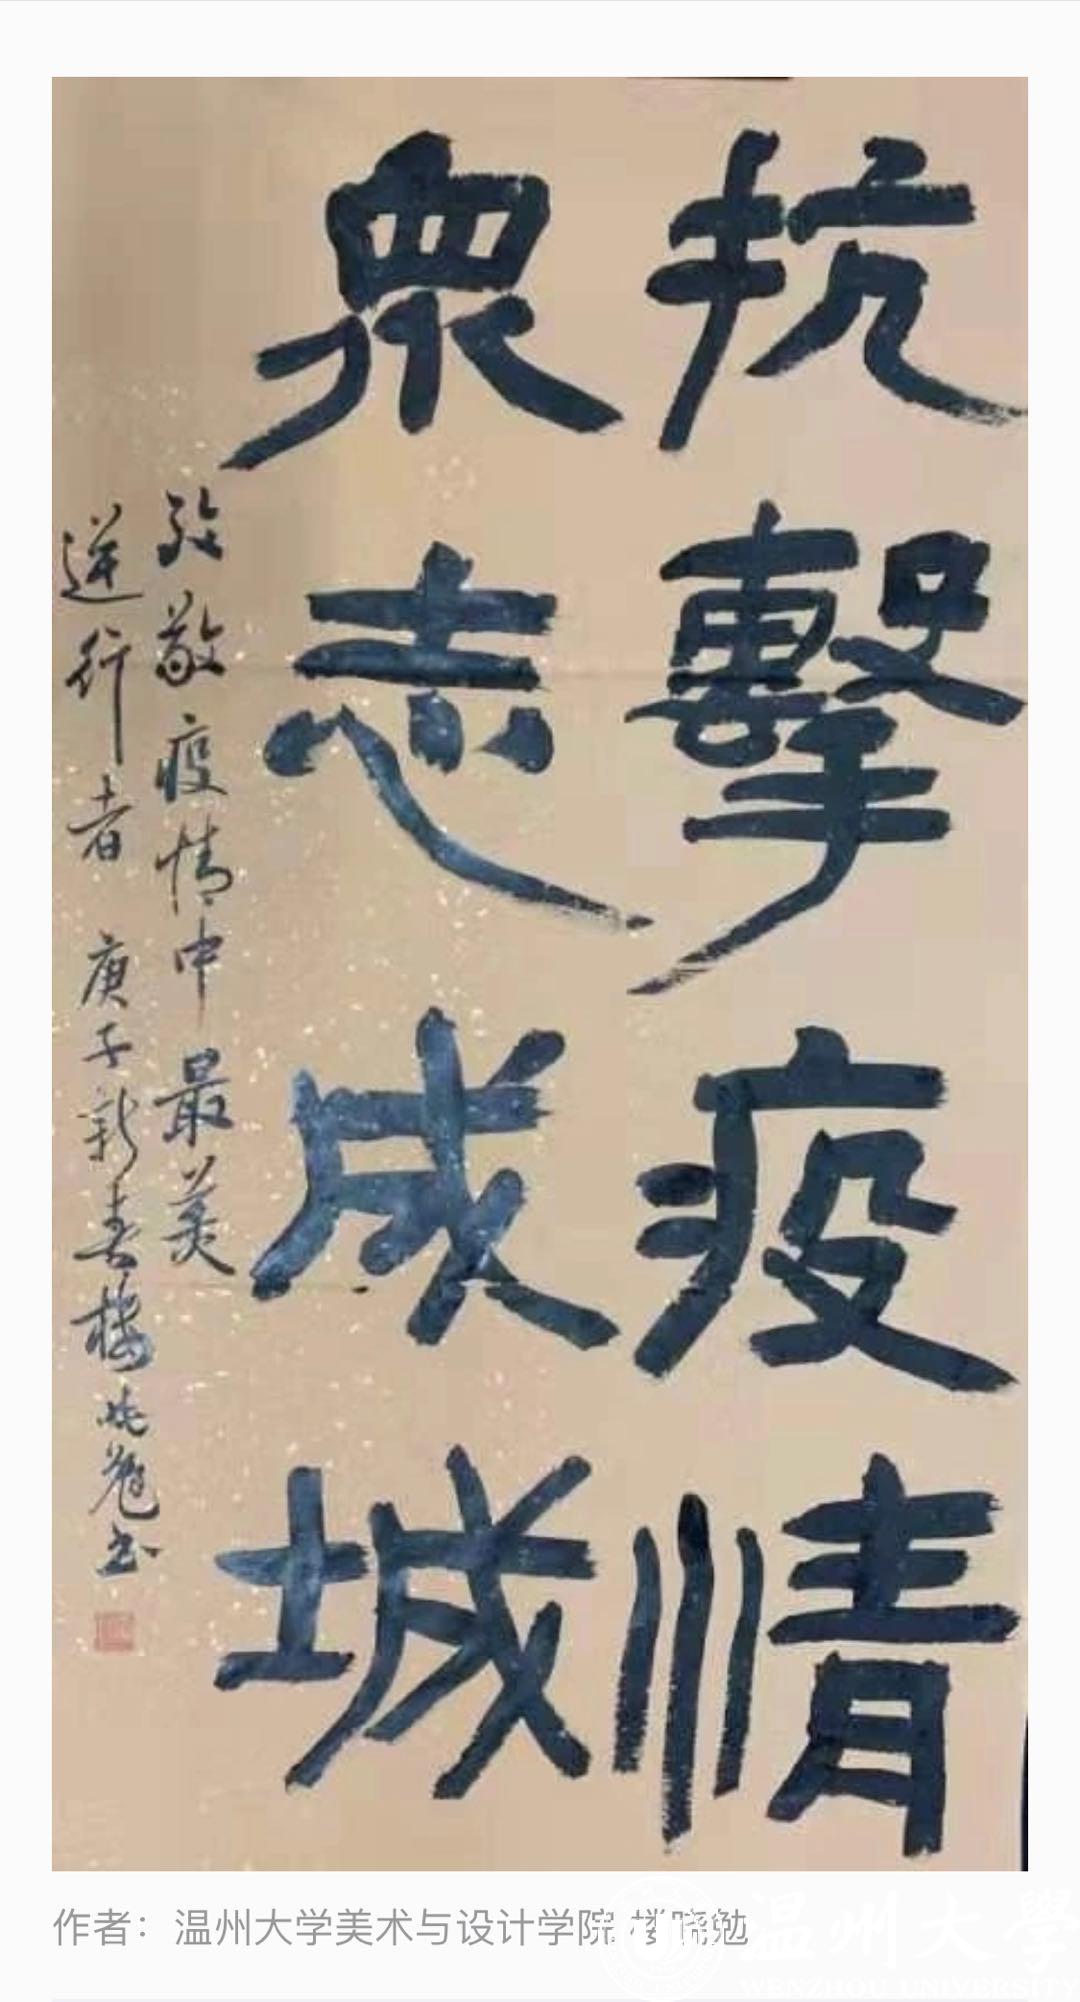 抗擊疫情
衆志成城
致敬疫情中最美
逆行者 庚子新春楼晓勉书
作者：温州大学美术与设计学院 楼晓勉
温州大學
WENZHOU UNIVERSITY